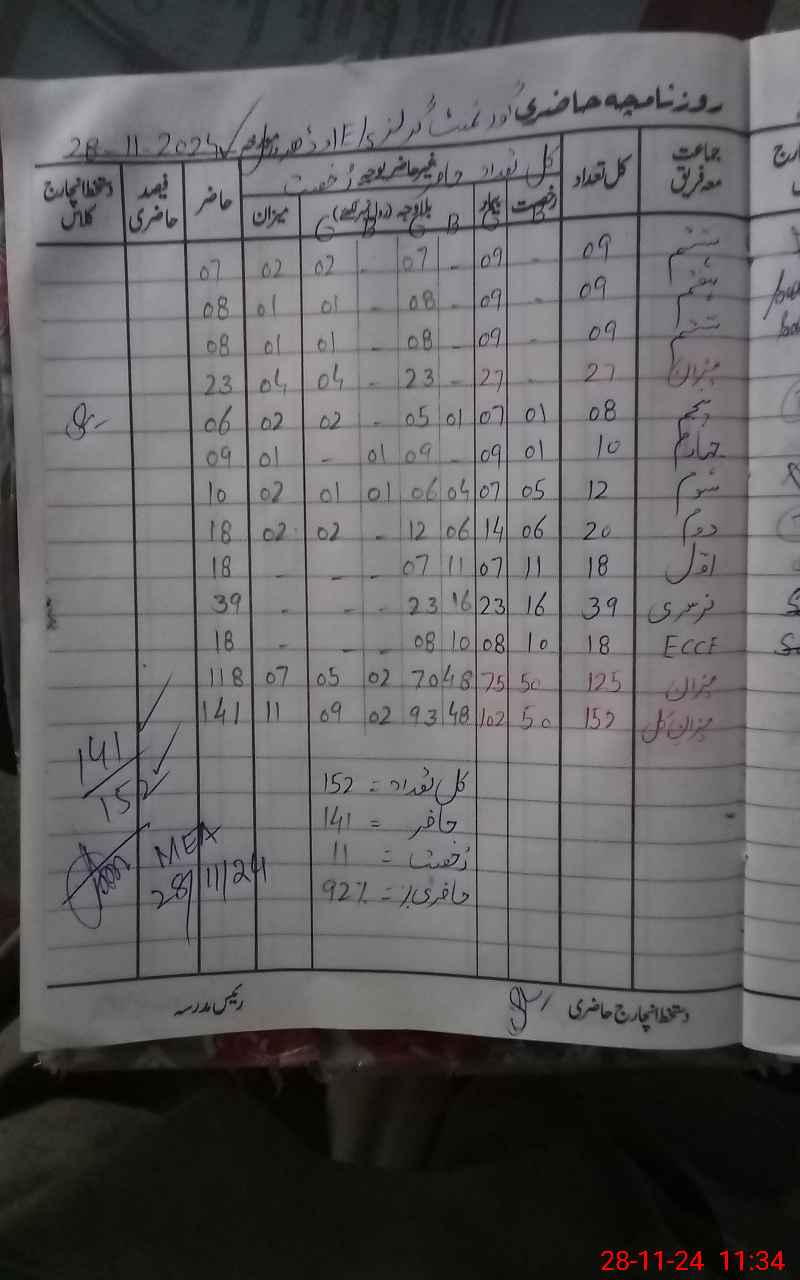 روزنامچہ حاضری گورنمنٹ گرلز E/S
28-11-2024
جماعت معہ فریق کل تعداد کل تعداد حاضر رخصت غیر حاضر بوجہ حاضر فیصد حاضری دستخط انچارج کلاس
رخصت بیمار بلاوجہ (رول نمبر لکھیے) میزان
B G B G B G
ہشتم 09 - 09 - 07 - 02 02 07
ہفتم 09 - 09 - 08 - 01 01 08
ششم 09 - 09 - 08 - 01 01 08
میزان 27 - 27 - 23 - 04 04 23
پنجم 08 01 07 01 05 - 02 02 06
چہارم 10 01 09 - 09 01 - 01 09
سوم 12 05 07 04 06 01 01 02 10
دوم 20 06 14 06 12 - 02 02 18
اول 18 11 07 11 07 - - - 18
نرسری 39 16 23 16 23 - - - 39
ECCE 18 10 08 10 08 - - - 18
میزان 125 50 75 48 70 02 05 07 118
میزان کل 152 50 102 48 93 02 09 11 141
141/152
کل تعداد = 152
حاضر = 141
رخصت = 11
حاضری٪ = 92%
MEA
28/11/24
دستخط انچارج حاضری رئیس مدرسہ
28-11-24 11:34